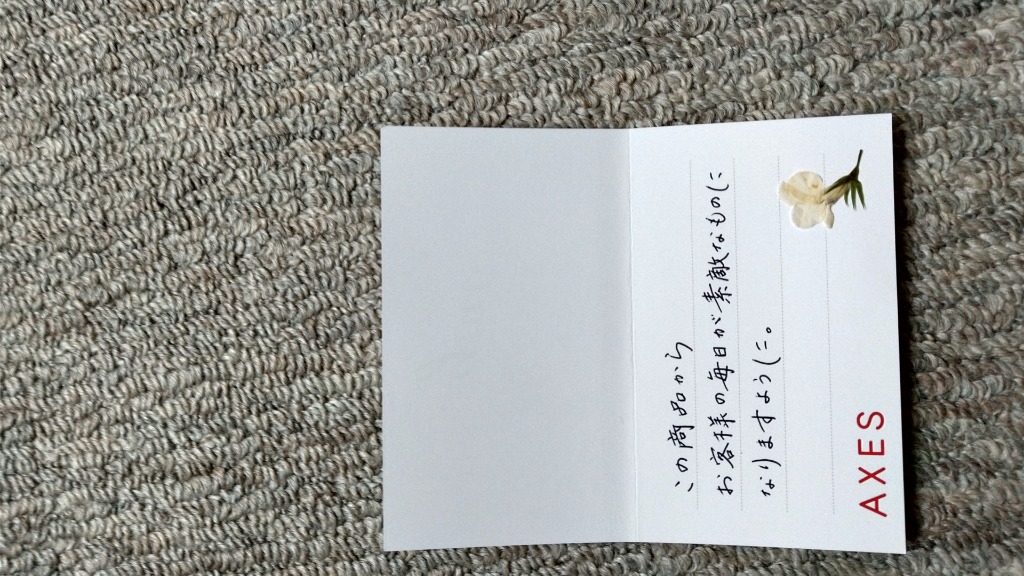 この商品から
お客様の毎日が素敵なものに
なりますように。
AXES